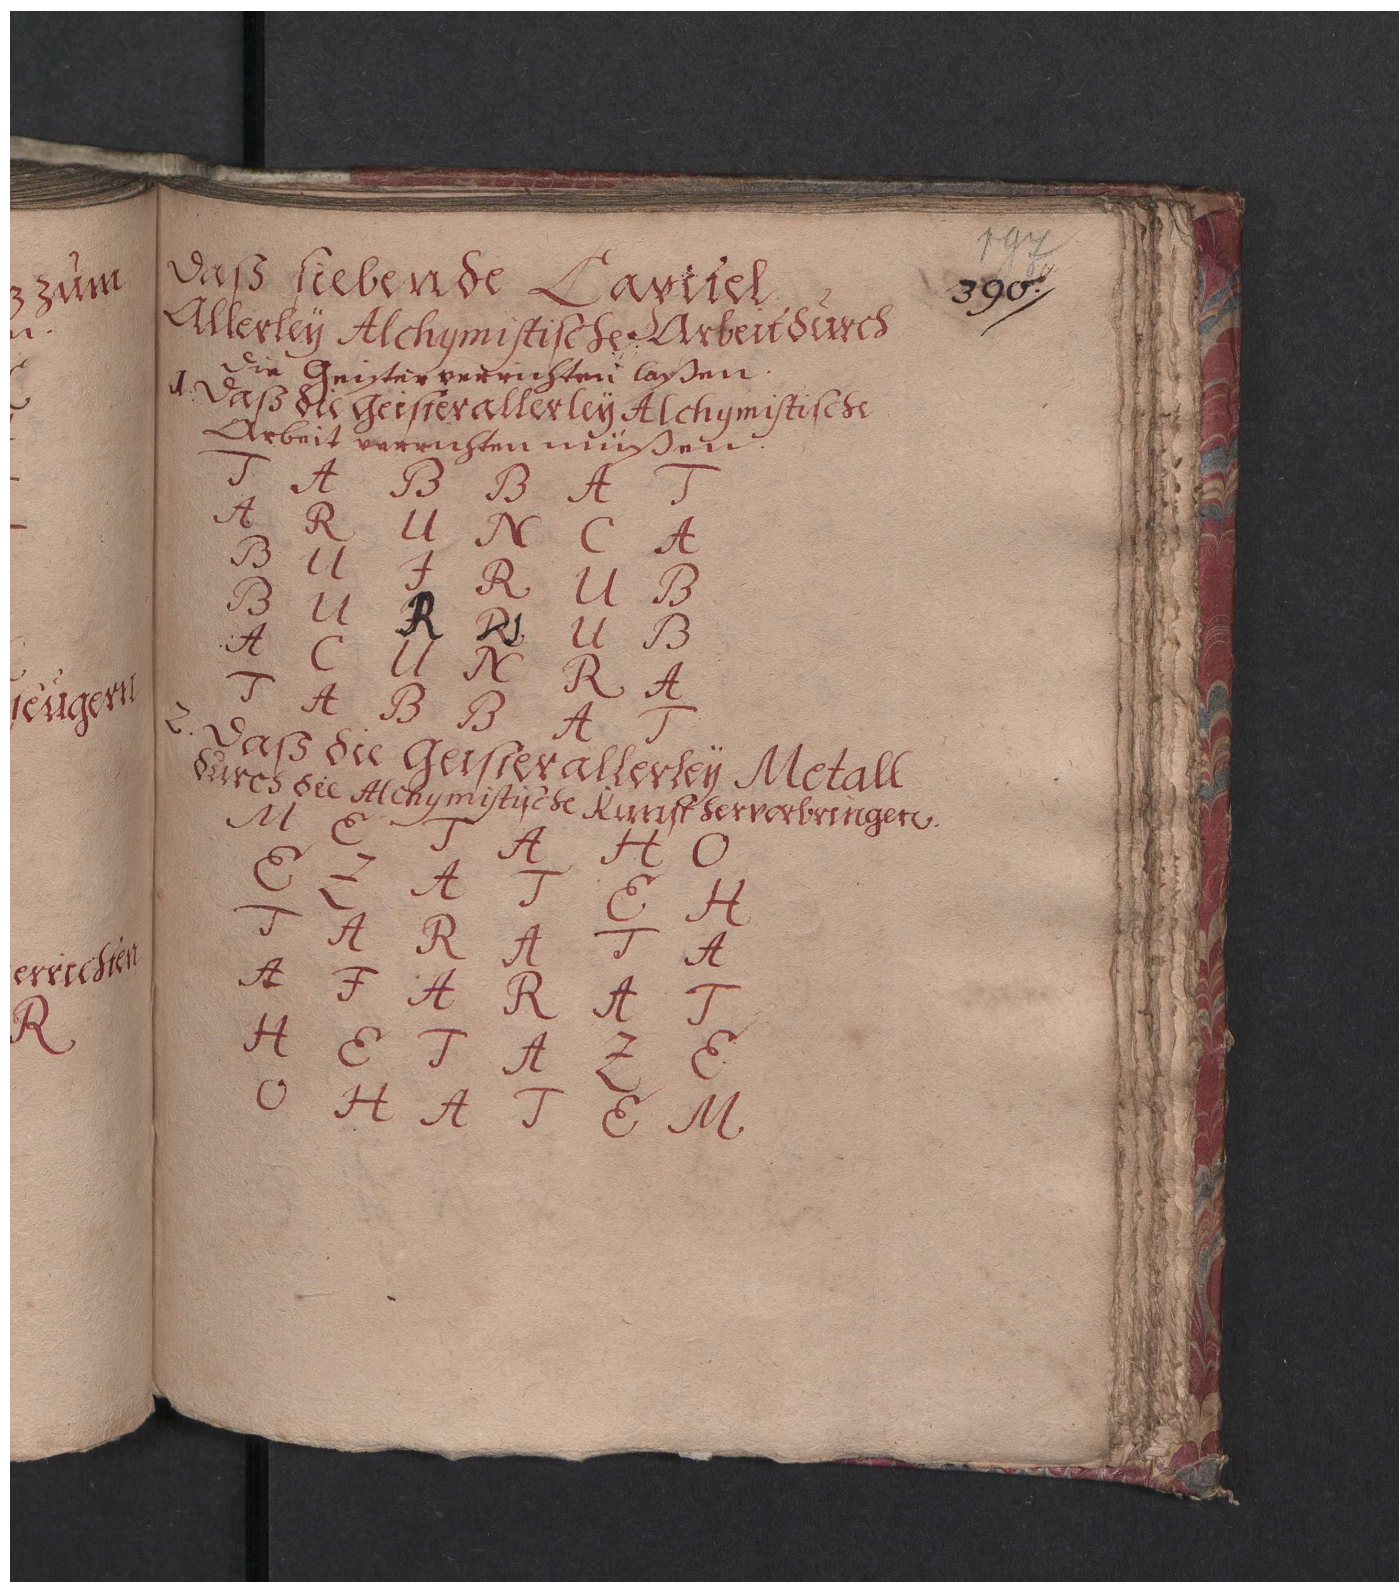 z zum
n.
ieugern
errichten
R
197
390.
Daß siebende Capitel
Allerleÿ Alchymistische Arbeit durch
die Geister verrichten laßen.
1. Daß die Geister allerleÿ Alchymistische
Arbeit verrichten müßen.
T A B B A T
A R U N C A
B U I R U B
B U R U B
A C U N R A
T A B B A T
2. Daß die Geister allerleÿ Metall
durch die Alchymistische Kunst hervorbringen.
M E T A H O
E Z A T E H
T A R A T A
A F A R A T
H E T A Z E
O H A T E M